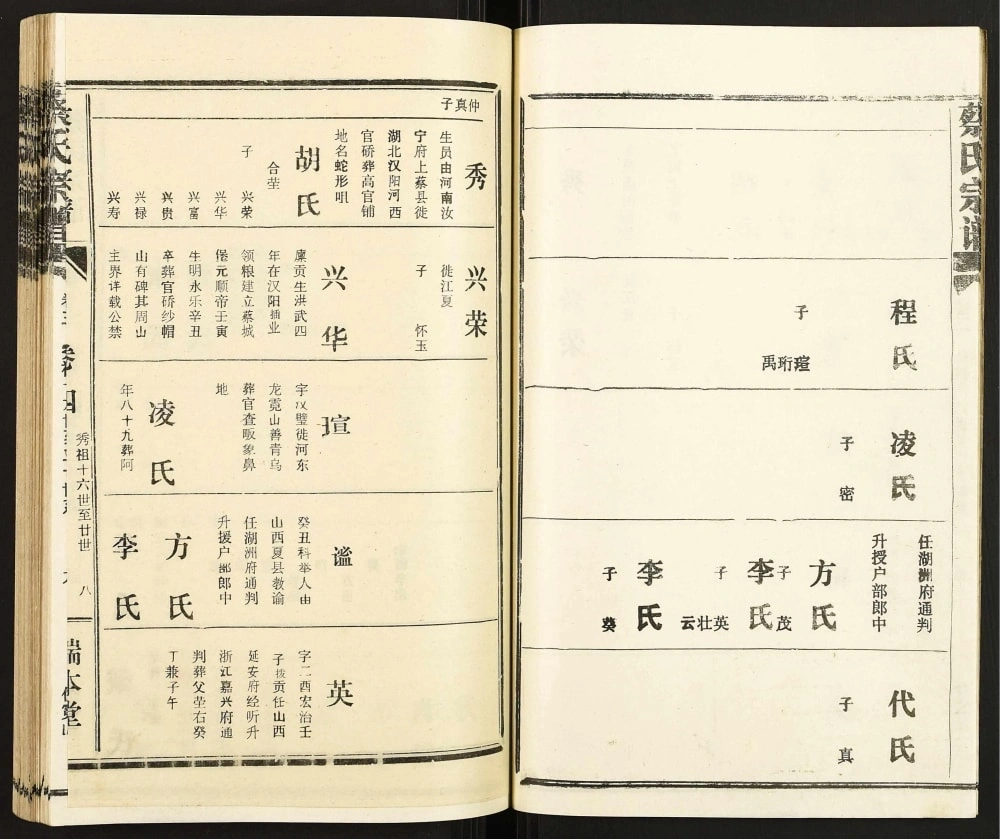 蔡氏宗谱
程氏
子
瑄珩禹
凌氏
子 密
任湖洲府通判
升授户部郎中
方氏
子 茂
李氏
子
英壮云
李氏
子 葵
代氏
子 真
仲真子
秀
生员由河南汝
宁府上蔡县徙
湖北汉阳河西
官硚葬高官铺
地名蛇形咀
胡氏
合茔
子 兴荣
兴华
兴富
兴贵
兴禄
兴寿
兴荣
徙江夏
子 怀玉
兴华
廪贡生洪武四
年在汉阳插业
领粮建立蔡城
堡元顺帝壬寅
生明永乐辛丑
卒葬官硚纱帽
山有碑其周山
主界详载公禁
瑄
字汉璧徙河东
龙霓山善青乌
葬官查畈象鼻
地
凌氏
年八十九葬阿
谧
癸丑科举人由
山西夏县教谕
任湖洲府通判
升援户部郎中
方氏
李氏
英
字二酉宏治壬
子拨贡任山西
延安府经听升
浙江嘉兴府通
判葬父茔右癸
丁兼子午
蔡氏宗谱
卷四
秀祖十六世至廿世
八
瑞本堂